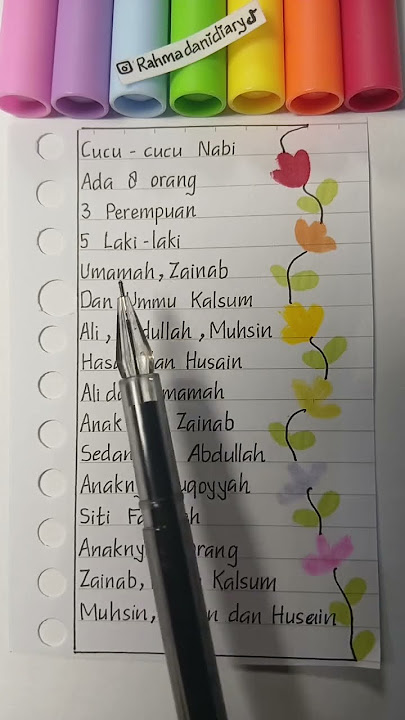 Rahmadanidiary
Cucu - cucu Nabi
Ada 8 orang
3 Perempuan
5 Laki-laki
Umamah, Zainab
Dan Ummu Kalsum
Ali, dullah, Muhsin
Hasa an Husain
Ali da mamah
Anak Zainab
Sedan Abdullah
Anakn uqoyyah
Siti Fa h
Anakny rang
Zainab, Kalsum
Muhsin, n dan Husein